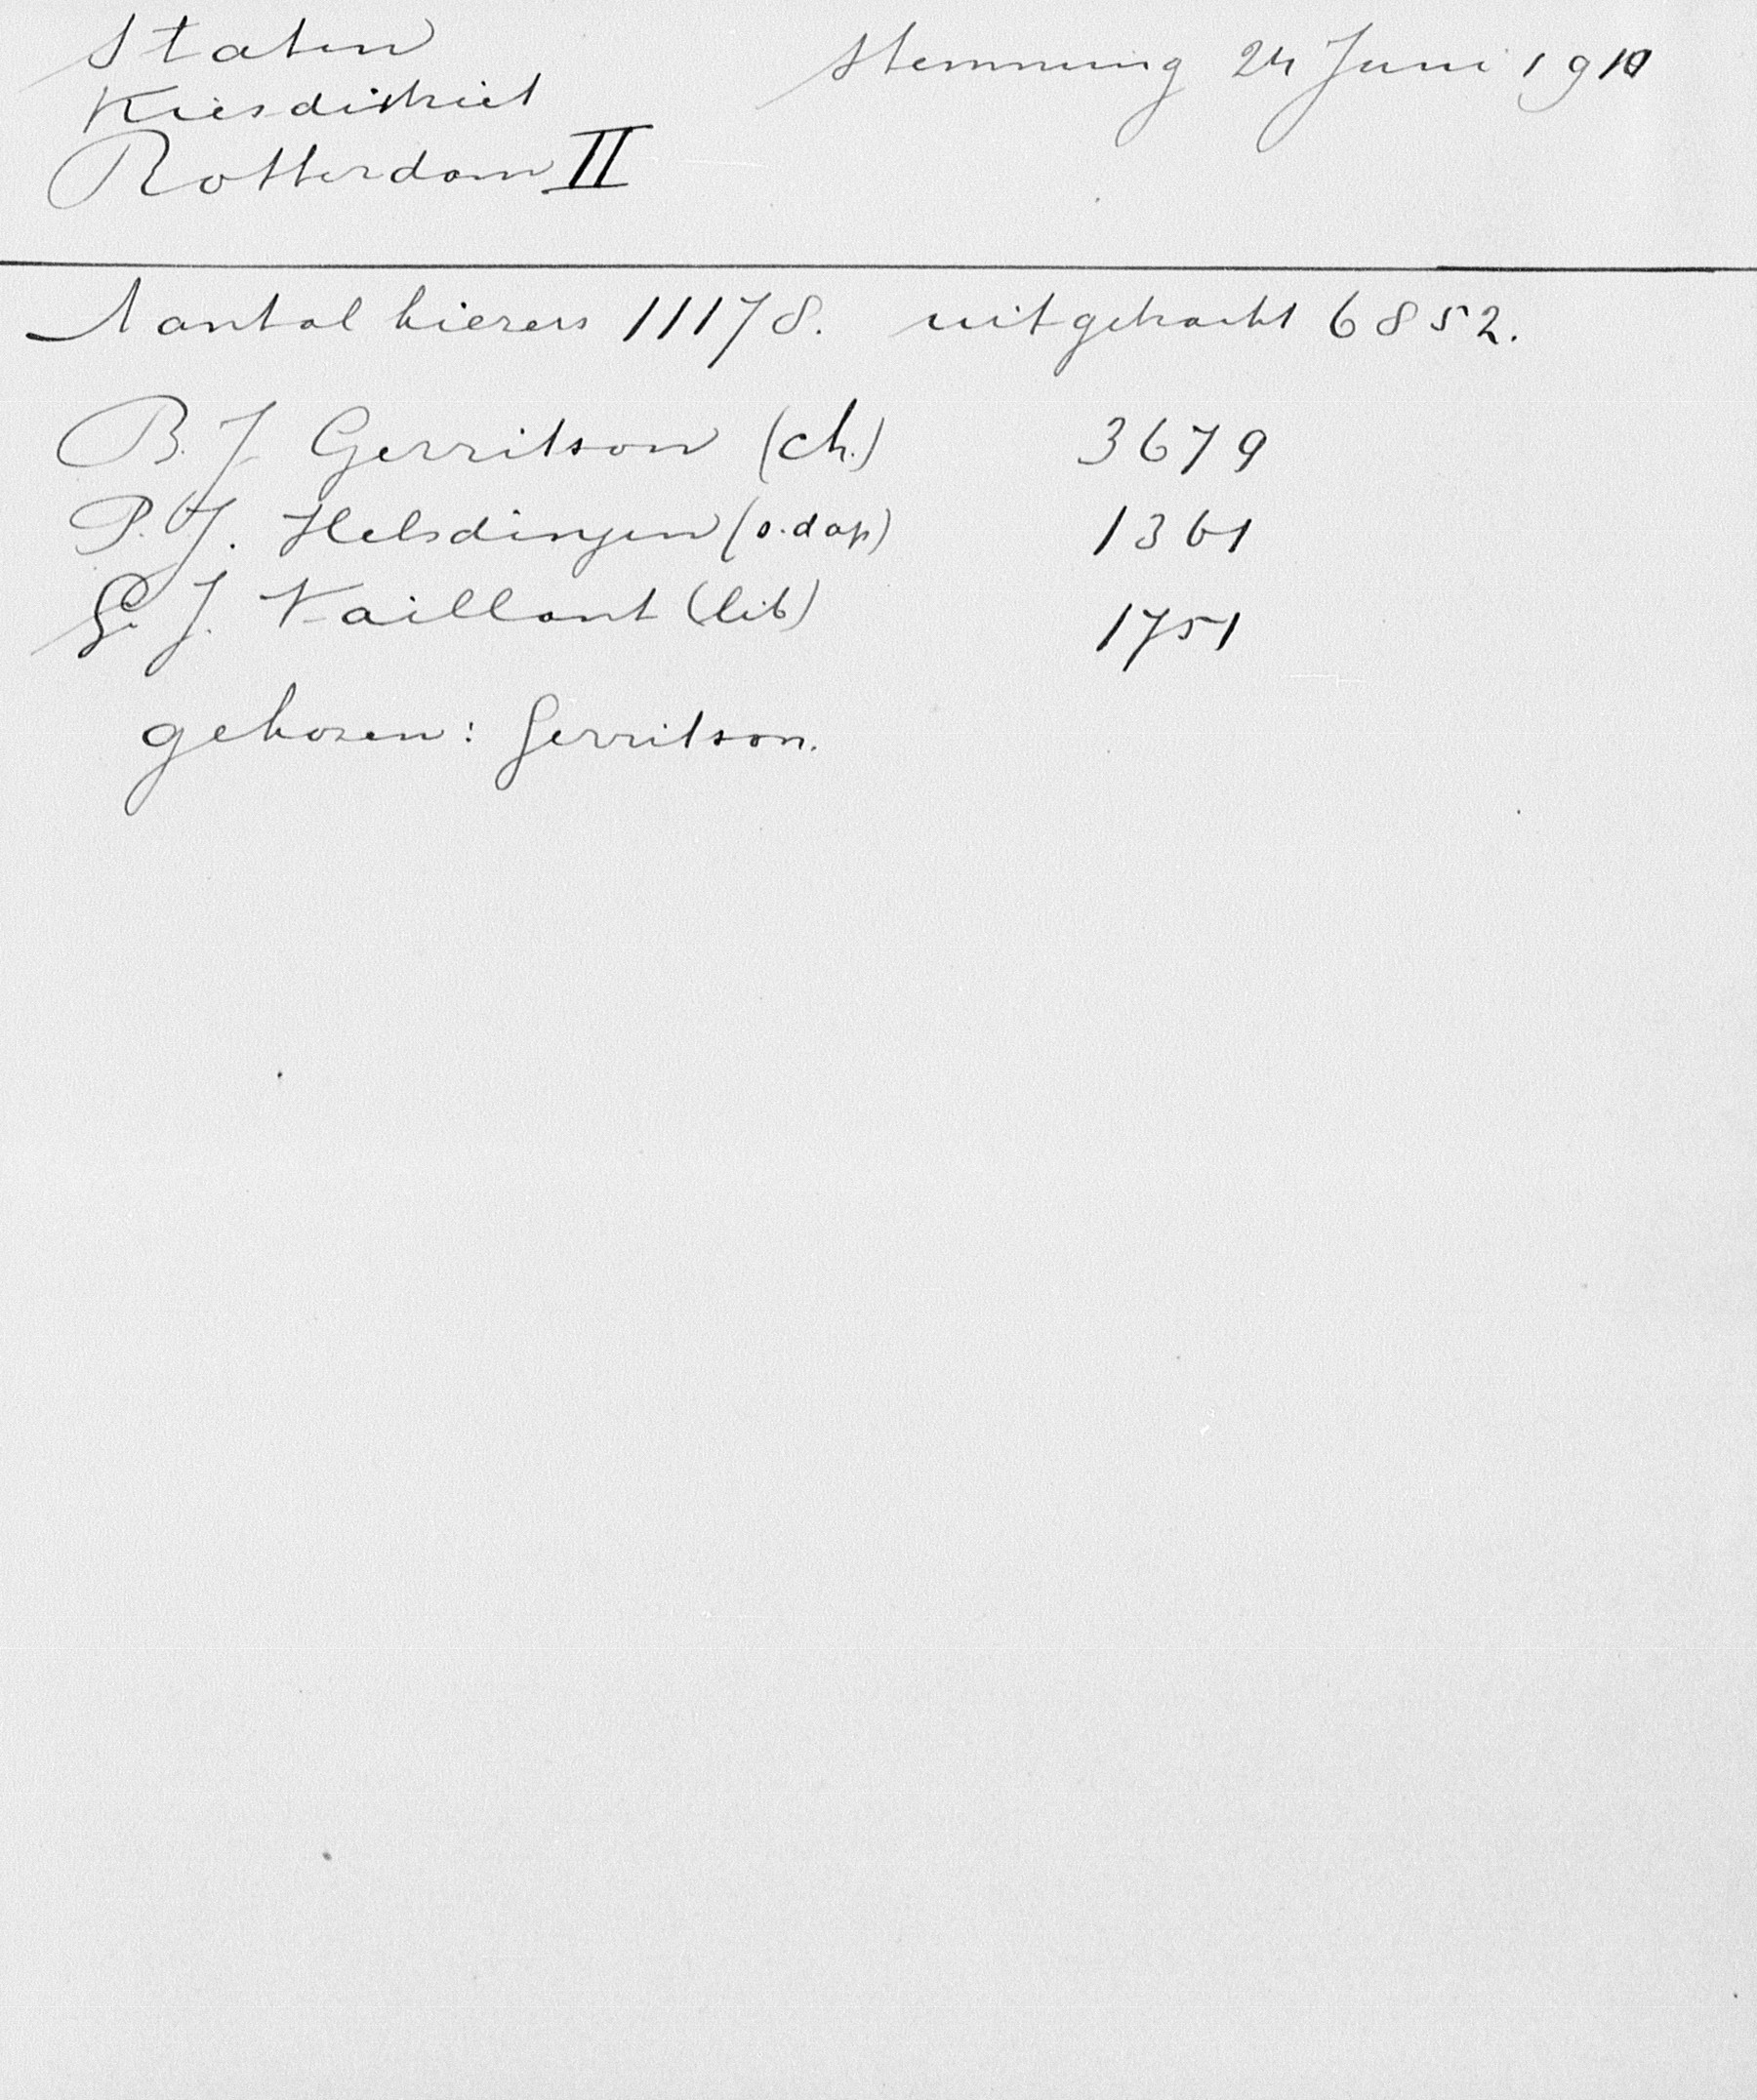 Staten
Kiesdistrict
Rotterdam II
Stemming 24 Juni 1910
Aantal kiezers 11178. uitgebracht 6852.
B. J. Gerritson (ch.) 3679
P. J. Helsdingen (s.dap) 1361
G. J. Vaillant (lib) 1751
gekozen: Gerritson.